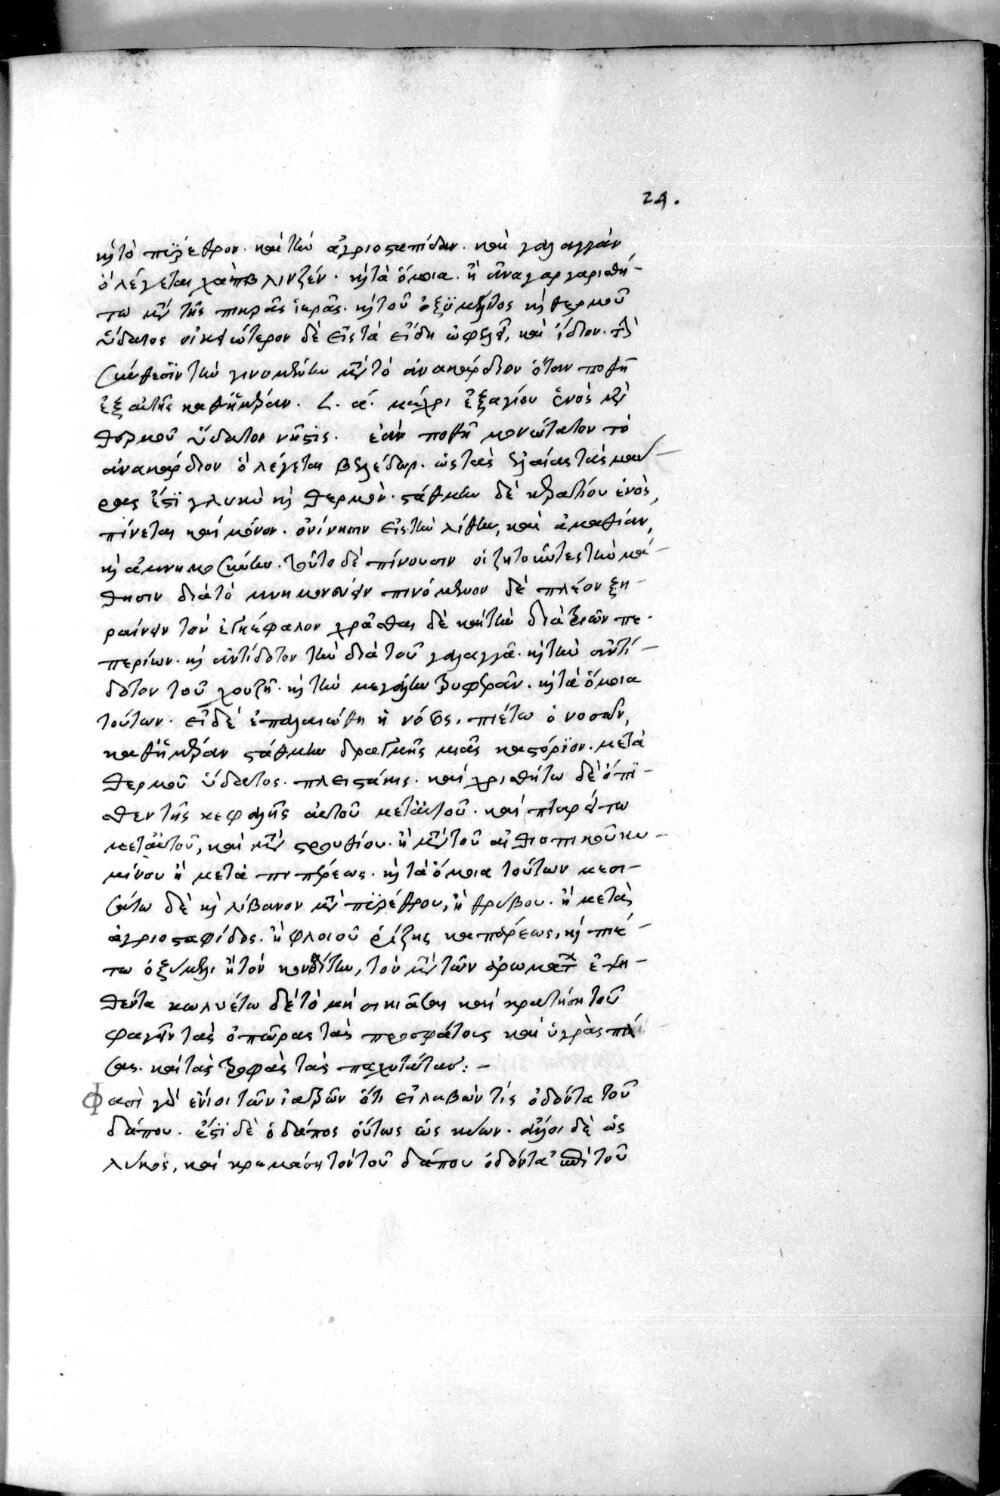 24.
καὶ τὸ πύρεθρον. καὶ τὴν ἀγριοσταπίδαν. καὶ γαλαγγὰν
ὃ λέγεται χάπβλινζέν. καὶ τὰ ὅμοια. ἢ ἀναγαργαριθή-
τω μετὰ τῆς πικρᾶς ἱερᾶς. καὶ τοῦ ὀξυμέλιτος καὶ θερμοῦ
ὕδατος οἰκειώτερον δὲ εἰς τὰ εἴδη ὠφελεῖ, καὶ ἴδιον.
σκύθεσιν τὴν γινομένην μετὰ τὸ ἀνακάρδιον ὅταν ποθῇ
ἐξ αὐτῆς καθ' ἡμέραν. ά. μέχρι ἑξαγίου ἑνὸς μετὰ
θερμοῦ ὕδατος νῆστις. ἐὰν ποθῇ μονώτατον τὸ
ἀνακάρδιον ὃ λέγεται βελέδωρ. ὡς τὰς ἐλαίας τὰς μαύ-
ρας ἔστι γλυκὺ καὶ θερμὸν. στάθμην δὲ κρατίου ἑνὸς,
πίνεται καὶ μόνον. ὀνίνησιν εἰς τὴν λίθην, καὶ ἀμαθίαν,
καὶ ἀμνημοσύνην. τοῦτο δὲ πίνουσιν οἱ ζητοῦντες τὴν μά-
θησιν διὰ τὸ μνημονεύειν πινόμενον δὲ πλέον ξη-
ραίνειν τὸν ἐγκέφαλον χρᾶσθαι δὲ καὶ τὴν διὰ τριῶν πε-
περίων. καὶ ἀντίδοτον τὴν διὰ τοῦ γαλαγγᾶ. καὶ τὴν ἀντί-
δοτον τοῦ χουζῆ. καὶ τὴν μεγάλην τρυφερὰν. καὶ τὰ ὅμοια
τούτων. εἰ δὲ ἐπαλαιώθη ἡ νόσος, πιέτω ὁ νοσῶν,
καθ' ἡμέραν στάθμην δραγμῆς μιᾶς καστόριον. μετὰ
θερμοῦ ὕδατος. πλειστάκις. καὶ χρισθήτω δὲ ὄπι-
σθεν τῆς κεφαλῆς αὐτοῦ μετ' αὐτοῦ. καὶ πταρέτω
μετ' αὐτοῦ, καὶ μετὰ στρουθίου. ἢ μετὰ τοῦ αἰθιοπικοῦ κυ-
μίνου ἢ μετὰ πιπέρεως. καὶ τὰ ὅμοια τούτων μεσι-
σάτω δὲ καὶ λίβανον μετὰ πυρέθρου, ἢ θρύβου. ἢ μετὰ
ἀγριοσταφίδος. ἢ φλοιοῦ ῥίζης καππάρεως, καὶ πιέ-
τω ὀξύμελι ἢ τὸν κονδίτην, τὸν μετὰ τῶν ἀρωμάτων ἑψη-
θέντα κωλυέτω δὲ τὸ μὴ σικιᾶσαι καὶ κρατήσῃ τοῦ
φαγεῖν τὰς ὀπώρας τὰς προσφάτους καὶ ὑγρὰς πά-
σας. καὶ τὰς τροφὰς τὰς παχυτάτας:-
Φασὶ γὰρ ἔνιοι τῶν ἰατρῶν ὅτι εἰ λαβὼν τίς ὀδόντα τοῦ
δάπου. ἔστι δὲ ὁ δάπος οὕτως ὡς κύων. ἄλλοι δὲ ὡς
λύκος, καὶ κρεμάσῃ τὸν τοῦ δάπου ὀδόντα ἐπὶ τοῦ